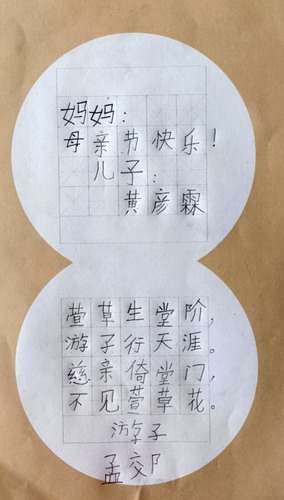 妈妈:
母亲节快乐!
儿子:
黄彦霖
萱草生堂阶,
游子行天涯。
慈亲倚堂门,
不见萱草花。
游子
孟郊